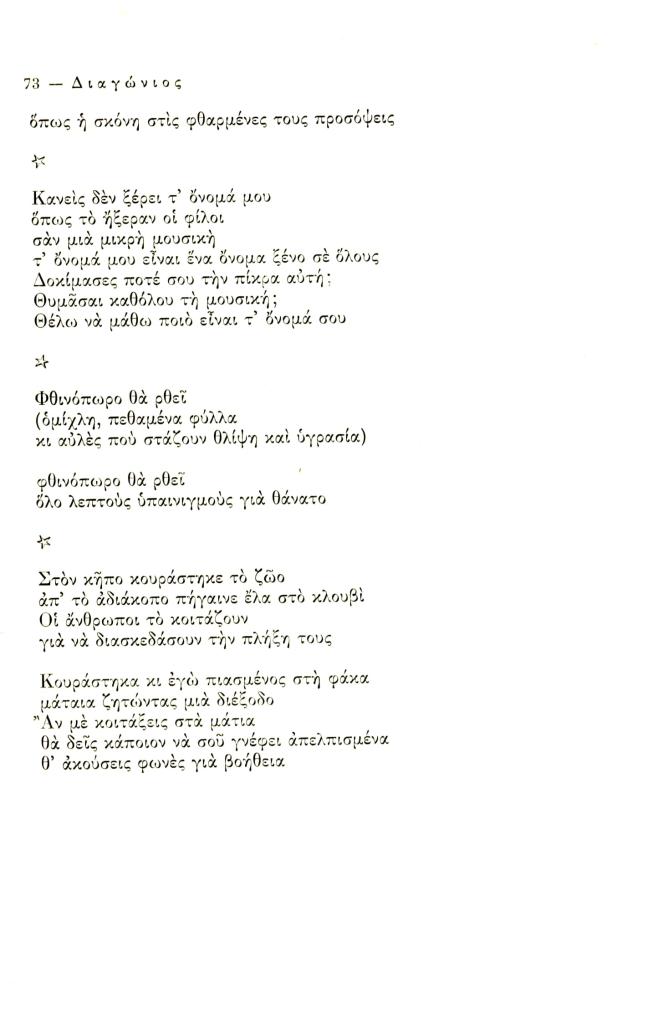 73 — Διαγώνιος
ὅπως ἡ σκόνη στὶς φθαρμένες τους προσόψεις
Κανεὶς δὲν ξέρει τ' ὄνομά μου
ὅπως τὸ ἤξεραν οἱ φίλοι
σὰν μιὰ μικρὴ μουσικὴ
τ' ὄνομά μου εἶναι ἕνα ὄνομα ξένο σὲ ὅλους
Δοκίμασες ποτέ σου τὴν πίκρα αὐτή;
Θυμᾶσαι καθόλου τὴ μουσική;
Θέλω νὰ μάθω ποιὸ εἶναι τ' ὄνομά σου
Φθινόπωρο θὰ ρθεῖ
(ὁμίχλη, πεθαμένα φύλλα
κι αὐλὲς ποὺ στάζουν θλίψη καὶ ὑγρασία)
φθινόπωρο θὰ ρθεῖ
ὅλο λεπτοὺς ὑπαινιγμοὺς γιὰ θάνατο
Στὸν κῆπο κουράστηκε τὸ ζῶο
ἀπ' τὸ ἀδιάκοπο πήγαινε ἔλα στὸ κλουβὶ
Οἱ ἄνθρωποι τὸ κοιτάζουν
γιὰ νὰ διασκεδάσουν τὴν πλήξη τους
Κουράστηκα κι ἐγὼ πιασμένος στὴ φάκα
μάταια ζητώντας μιὰ διέξοδο
Ἂν μὲ κοιτάξεις στὰ μάτια
θὰ δεῖς κάποιον νὰ σοῦ γνέφει ἀπελπισμένα
θ' ἀκούσεις φωνὲς γιὰ βοήθεια